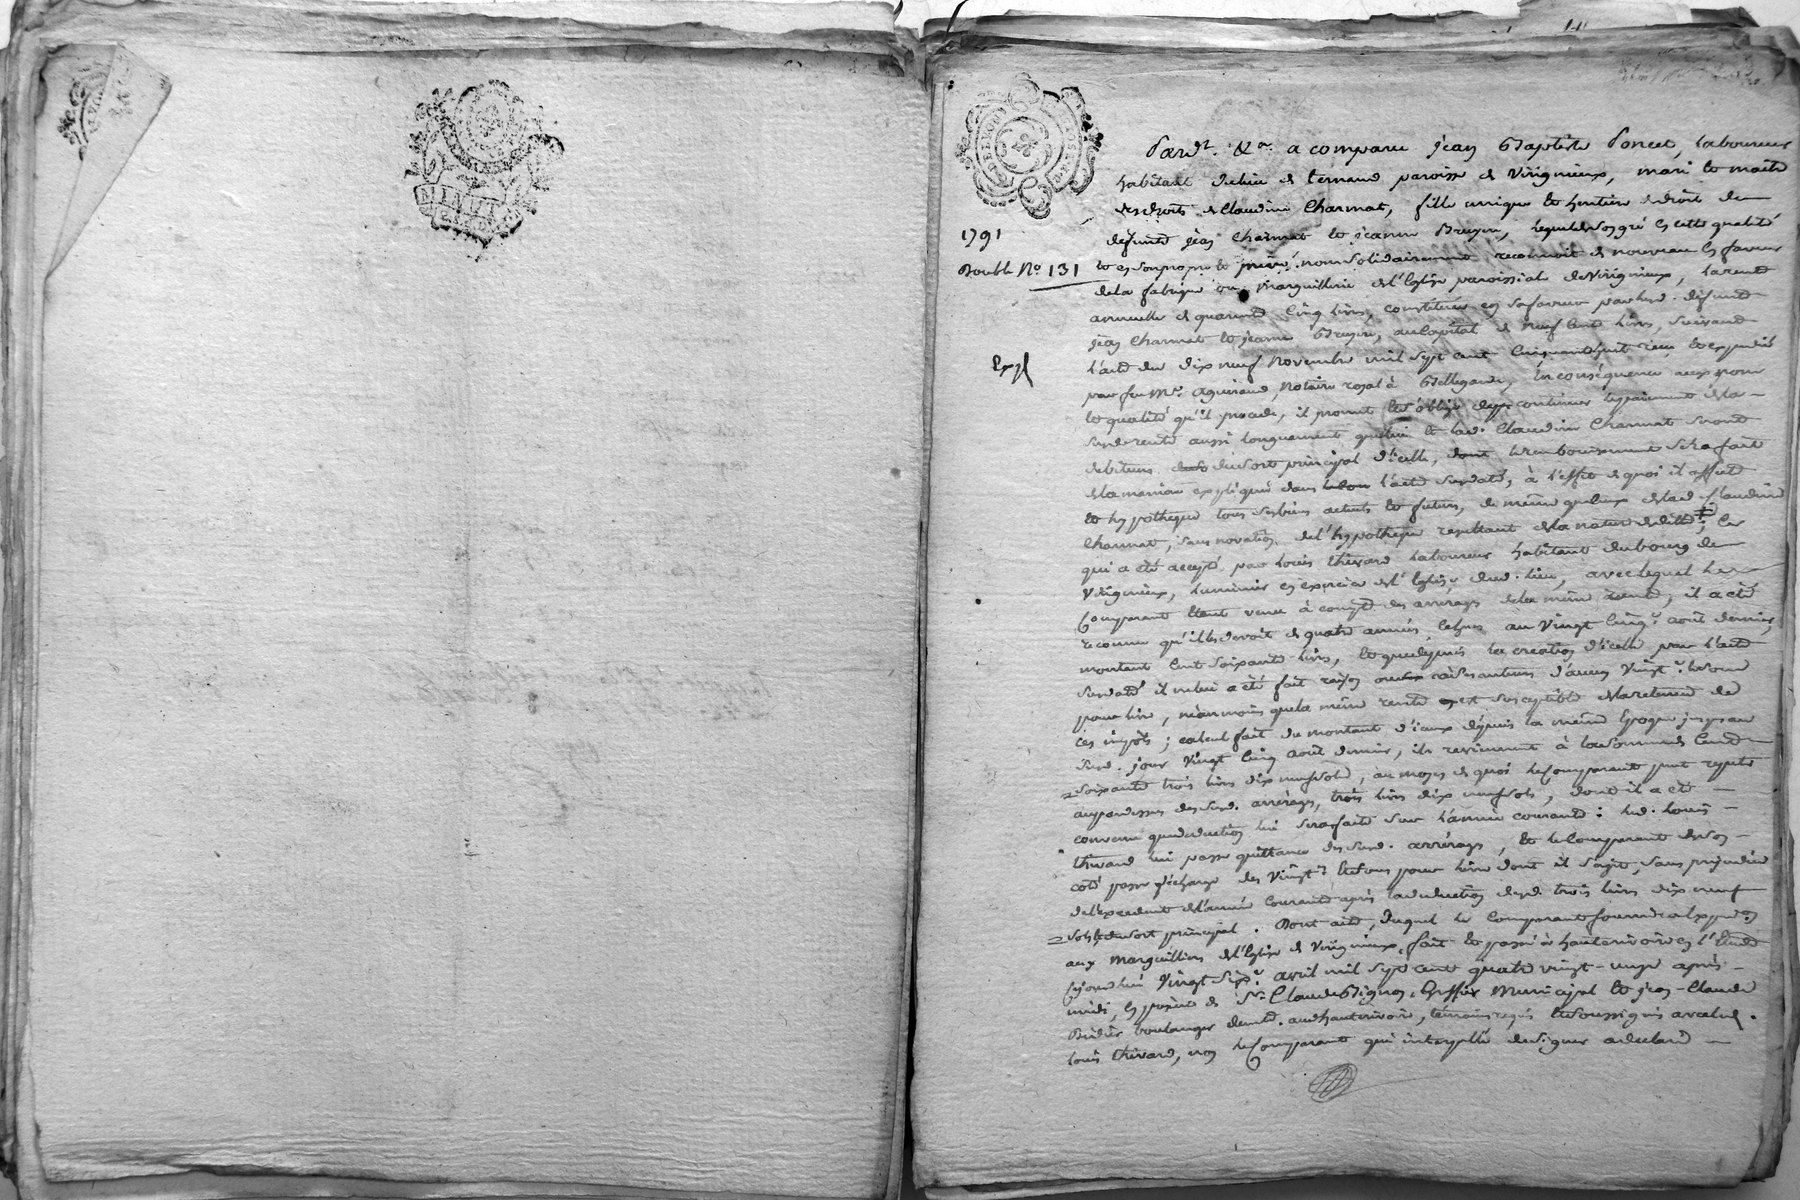 MINUTE
Pard.t &.a a comparu jean Baptiste Poncet, laboureur
habitant du lieu de ternand paroisse de Virignieux, mari et maitre
des droits de Claudine Charmat, fille unique et heritiere de droit de
1791
defunts jean Charmat et jeanne Bruyere, lequel de son gré en cette qualité
Double N.o 131
et en son propre et privé nom solidairement reconnoit de nouveau en faveur
de la fabrique ou marguillerie de l'Eglise paroissiale de Virignieux, la rente
annuelle de quarante Cinq livres, constituée en sa faveur par lesd. defunts
jean Charmat et jeanne Bruyere, au Capital de neuf Cent livres, suivant
Exp.
l'acte du dix neuf Novembre mil sept cent Cinquante huit reçu et expedié
par feu M.e Notaire royal à Bellegarde, En conséquence aux nom
et qualité qu'il procede, il promet et s'oblige de continuer le payement de la
susd. rente aussi longuement que lui et lad. Claudine Charmat seront
debiteurs du sort principal d'icelle, dont le remboursement sera fait
de la maniere expliquée dans l'acte susdaté, à l'effet de quoi il affecte
et hypotheque tous ses biens actuels et futurs, de même que ceux de lad. Claudine
Charmat, sans novation de l'hypotheque resultant de la nature de Ce
qui a été accepté par Louis thivard laboureur habitant du bourg de
Virignieux, luminier en exercice de l'Eglise dud. lieu, avec lequel le
Comparant étant venu à compte des arrerages de la même rente, il a été
reconnu qu'il les devoit de quatre années échues au Vingt Cinq.e août dernier,
montant Cent soixante livres, et que depuis la creation d'icelle par l'acte
susdaté il ne lui a été fait raison d'aucun Vingt.e et sous
pour livre, néanmoins que la même rente est susceptible de la retenue de
ces impôts; calcul fait du montant d'iceux depuis la même Epoque jusqu'au
susd. jour Vingt Cinq août dernier, ils reviennent à la somme de Cent
soixante trois livres dix neuf sols, au moyen de quoi le Comparant peut repeter
au par dessus des susd. arrérages, trois livres dix neuf sols, dont il a été
convenu que deduction lui sera faite sur l'année courante: led. Louis
thivard lui passe quittance des susd. arrérages, et le Comparant de son
coté passe décharge des Vingt.e et sous pour livre dont il s'agit, sans préjudice
de l'excedent de l'année courante après la deduction desd. trois livres dix neuf
sols et du sort principal. Dont acte, duquel le Comparant fournira Expéd.on
aux marguilliers de l'Eglise de Virignieux, fait et passé à hauterivoire en l'Etude
cejourd'hui Vingt six.e avril mil sept cent quatre vingt-onze après
midi, En présence de S.r Claude Greffier Municipal et jean-Claude
boulanger demt. aud. hauterivoire, témoins requis et soussignés avec led.
Louis thivard, non le Comparant qui interpellé de signer a déclaré